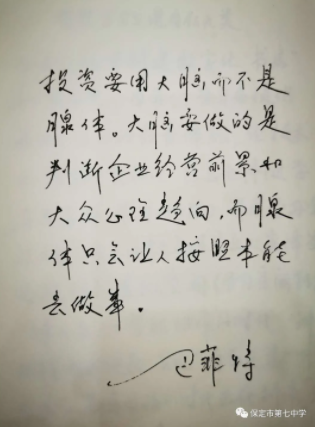 投资要用大脑而不是
腺体。大脑要做的是
判断企业经营前景和
大众心理趋向，而腺
体只会让人按照本能
去做事。
巴菲特
保定市第七中学